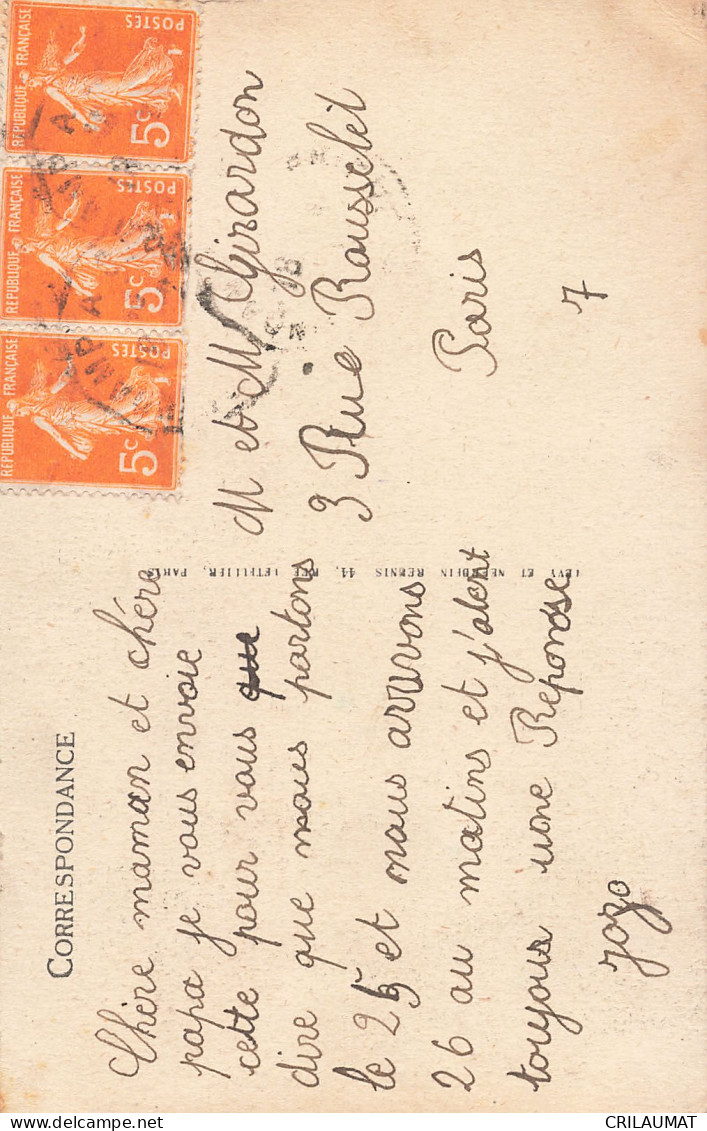 CORRESPONDANCE
Chère maman et chére
papa je vous envoie
cette pour vous que
dire que nous partons
le 25 et nous arruvons
26 au matins et j'atent
toujous une Reponose
Jozo
LEVY ET NEURDEIN REUNIS 44, RUE LETELLIER, PARIS
M et M Girardon
3 Rue Rousselet
Paris
7
REPUBLIQUE FRANÇAISE
POSTES
5c
REPUBLIQUE FRANÇAISE
POSTES
5c
REPUBLIQUE FRANÇAISE
POSTES
5c
CRILAUMAT